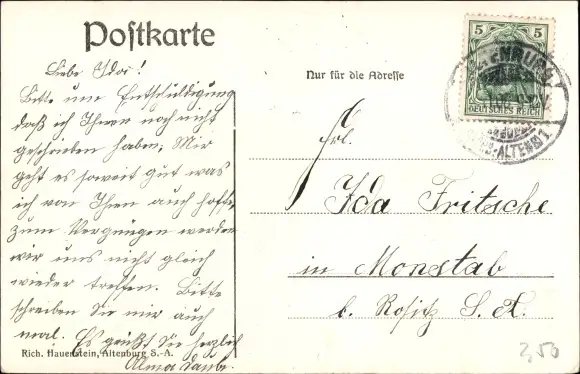 Postkarte
Liebe Ida!
Bitte um Entschuldigung
daß ich Ihnen noch nicht
geschrieben haben; Mir
geht es soweit gut was
ich von Ihnen auch hoffe,
zum Vergnügen werden
wir uns nicht gleich
wieder treffen. Bitte
schreiben Sie mir auch
mal. Es grüßt Sie herzlich
Alma
Rich. Hauenstein, Altenburg S.-A.
Nur für die Adresse
5 5
DEUTSCHES REICH
ALTENBURG
Frl.
Ida Fritsche
in Monstab
b. Rositz S. A.
2,50